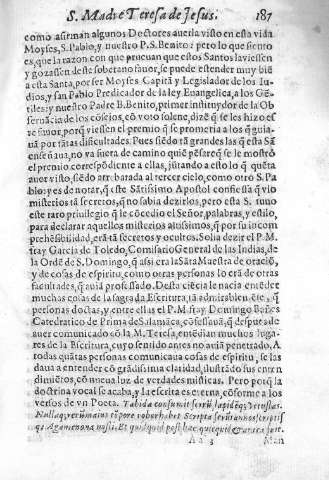 S. Madre Teresa de Jesus. 187
como afirman algunos Doctores auerla visto en esta vida
Moyses, S. Pablo, y nuestro P. S. Benito: pero lo que siento
es, que la razon con que prueuan que estos Santos la viessen
y gozassen deste soberano fauor, se puede estender muy biẽ
a esta Santa, por ser Moyses Capitã y Legislador de los Iu-
dios, y san Pablo Predicador de la ley Euangelica, a los Gẽ-
tiles: y nuestro Padre B. Benito, primer instituydor de la Ob
seruãcia de los cõsejos, cõ voto solene, dizẽ q̃ se les hizo es
te fauor, porq̃ viessen el premio q̃ se prometia a los q̃ guia-
uã por tãtas dificultades. Pues siẽdo tã grandes las q̃ esta Sã
ta enseñaua, no va fuera de camino quiẽ pẽsare q̃ se le mostrò
el premio correspõdiente a ellas, jũtando a esto lo q̃ quẽta
auer visto, siẽdo arrebatada al tercer cielo, como otro S. Pa
blo: y es de notar, q̃ este Sãtissimo Apostol confiessa q̃ vio
misterios tã secretos, q̃ no sabia dezirlos, pero esta S. tuuo
este raro priuilegio q̃ le cõcedio el Señor, palabras, y estilo,
para declarar aquellos misterios altissimos, q̃ por su incom
prehẽsibilidad, erã tã secretos y ocultos. Solia dezir el P. M.
fray Garcia de Toledo, Comissario General de las Indias, de
la Ordẽ de S. Domingo, q̃ assi era la Sãta Maestra de oraciõ,
y de cosas de espiritu, como otras personas lo erã de otras
facultades, q̃ auiã professado. Desta ciẽcia le nacia entẽder
muchas cosas de la sagrada Escritura, tã admirablemẽte, q̃
personas doctas, y entre ellas el P. M. fray Domingo Bañes
Catedratico de Prima de Salamãca, cõfessauã, q̃ despues de
auer comunicado cõ la M. Teresa, entẽdian muchos lugares
de la Escritura, cuyo sentido antes no auiã penetrado. A
todas quãtas personas comunicaua cosas de espiritu, se las
daua a entender cõ grãdissima claridad, ilustrãdo sus enten
dimiẽtos, cõ nueua luz de verdades misticas. Pero porq̃ la
doctrina vocal se acaba, y la escrita es eterna, cõforme a los
versos de vn Poeta. Tabida consumit ferrũ, lapidẽq; vetustas.
Nullaq; res maius tẽpore robur habet. Scripta ferũt annos, scriptis
Agamenona nosti. Et quidquid post hac
A a 3